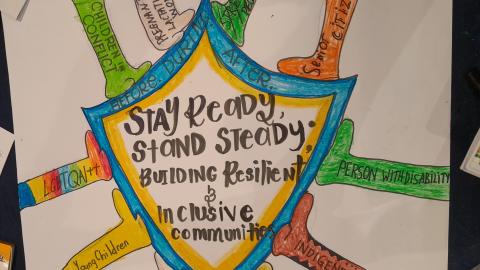 CHILDREN IN
CONFLICT
PREGNANT
LACTATING
SENIOR
CITIZE
BEFORE, DURING, AFTER.
STAY READY,
STAND STEADY:
BUILDING RESILIENT
&
INCLUSIVE
COMMUNITIES
LGBTQAI+
PERSON WITH DISABILITY
YOUNG CHILDREN
INDIGE